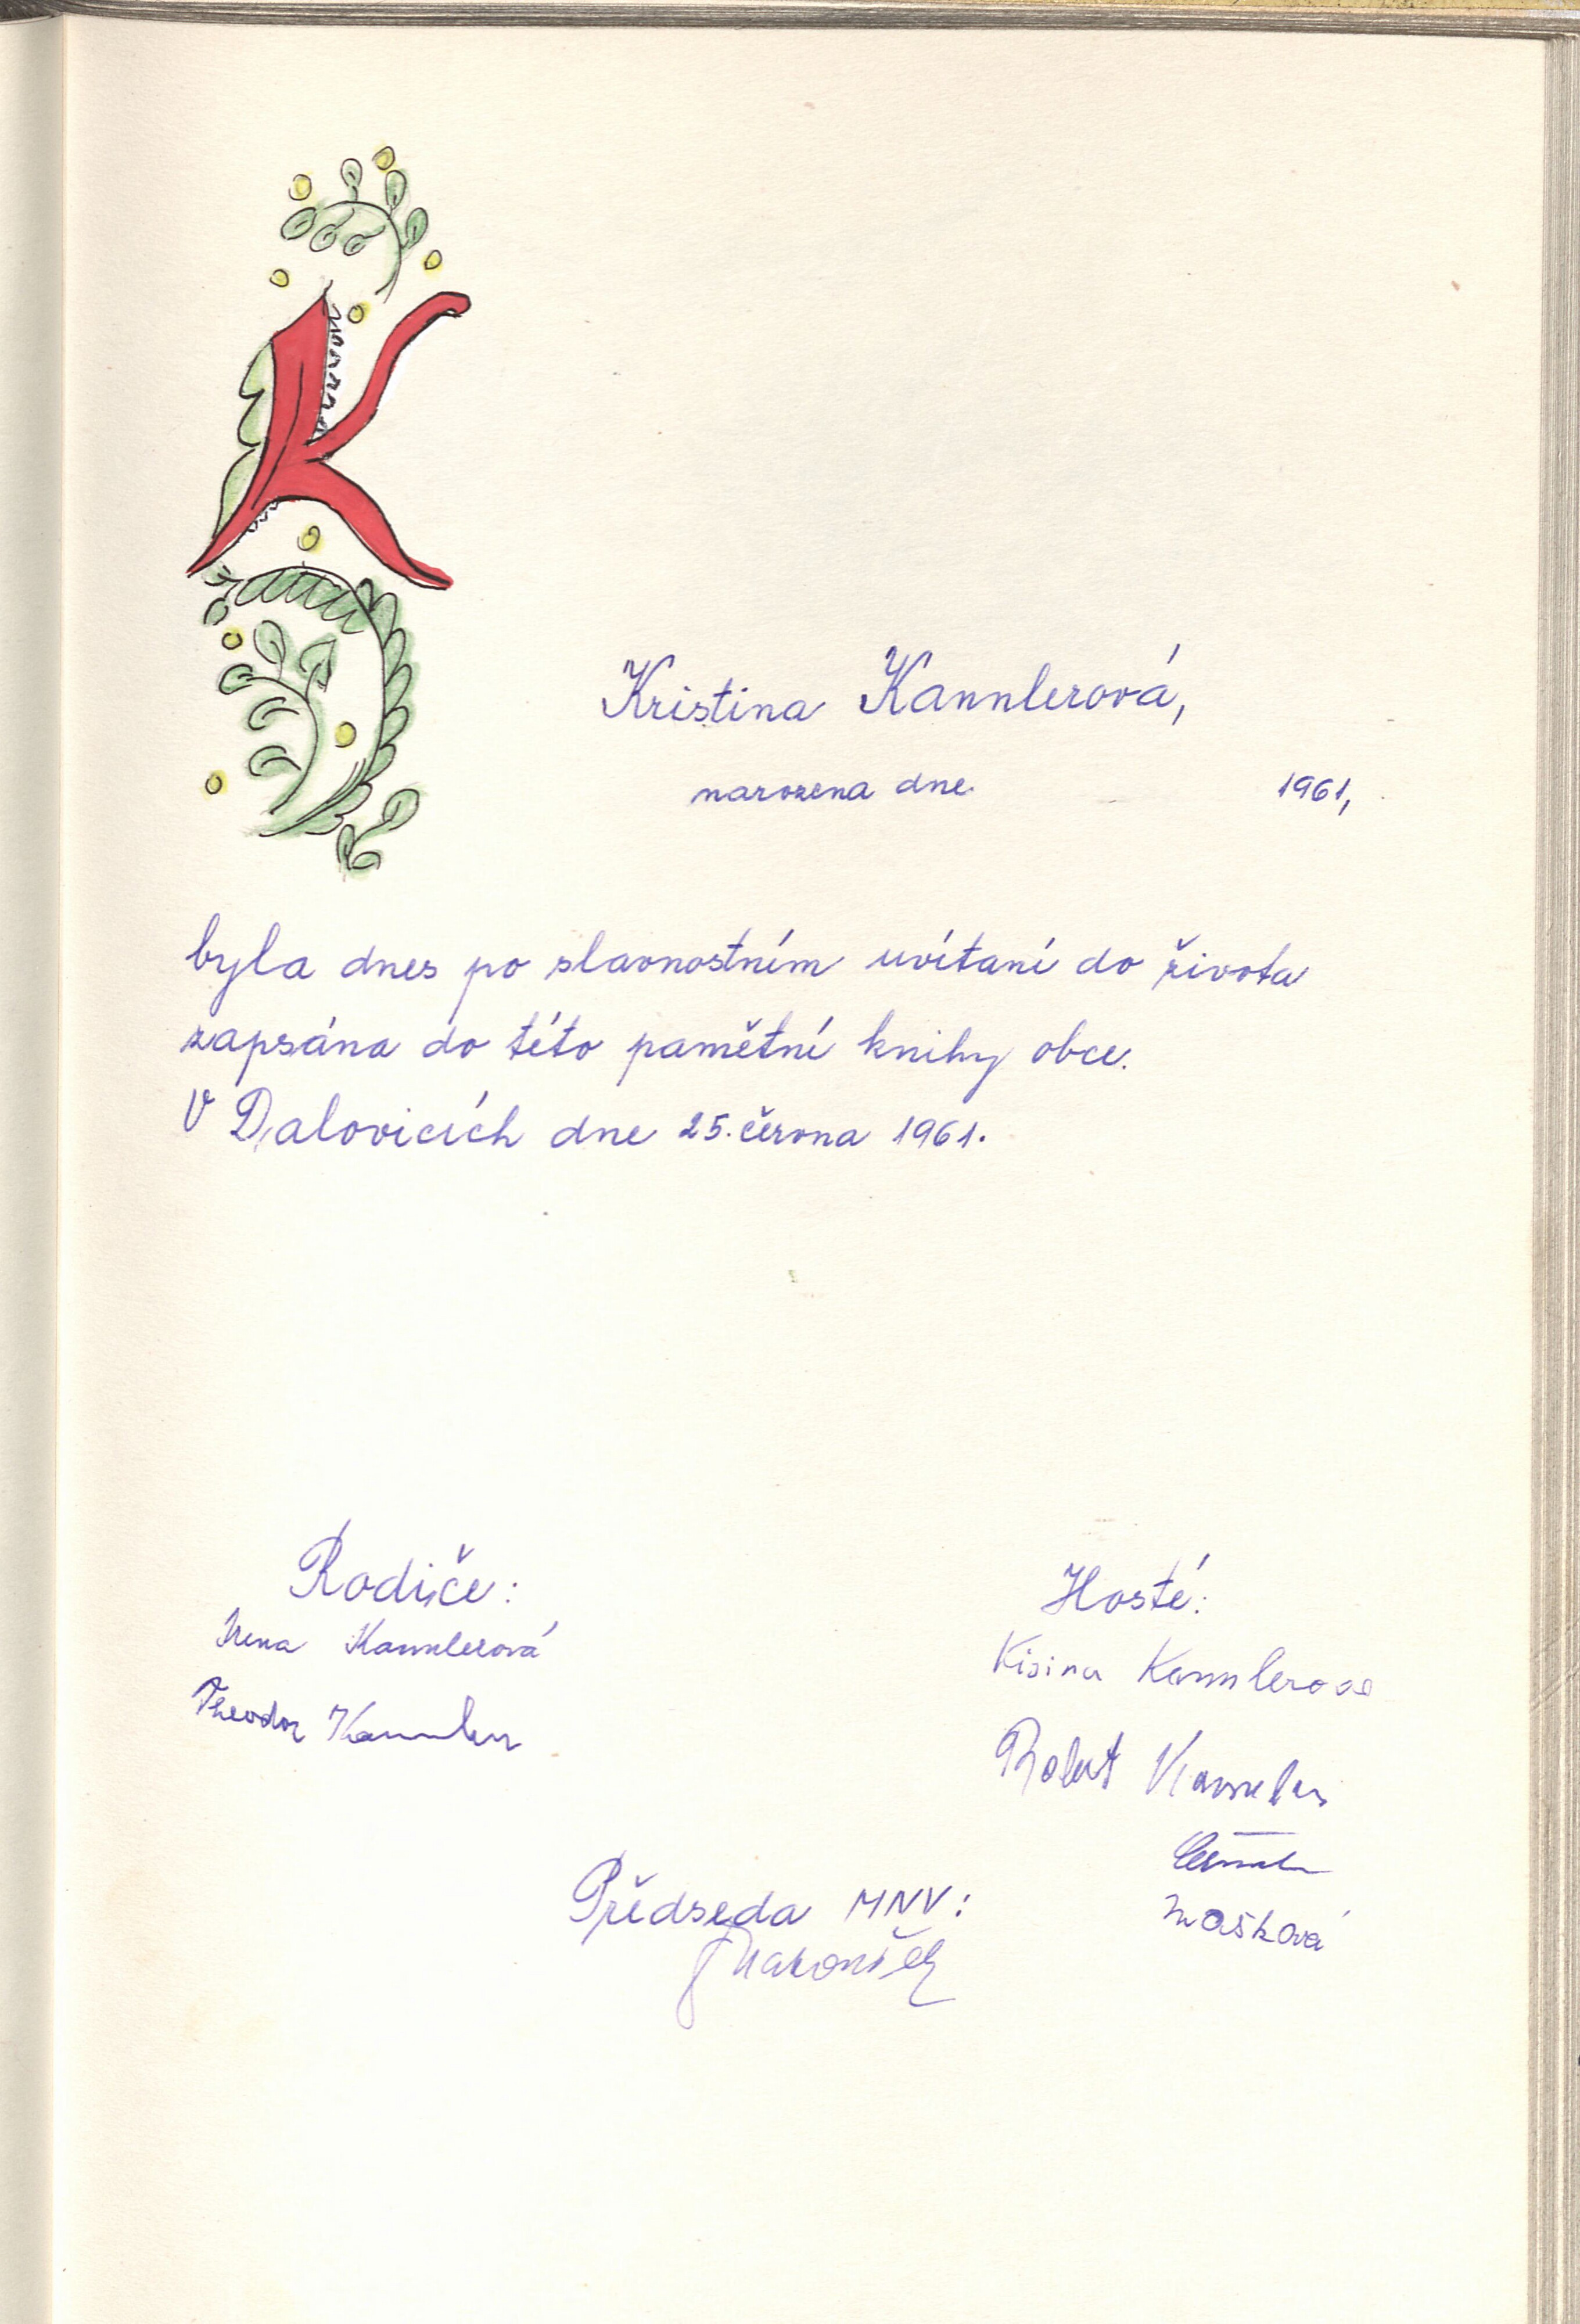 K
Kristina Kannlerová,
narozena dne 1961,
byla dnes po slavnostním uvítaní do života
zapsána do této pamětní knihy obce.
V Dalovicích dne 25. června 1961.
Rodiče:
Irena Kannlerová
Theodor Kannler
Hosté:
Kannlerova
Robert Kannler
Mašková
Předseda MNV: